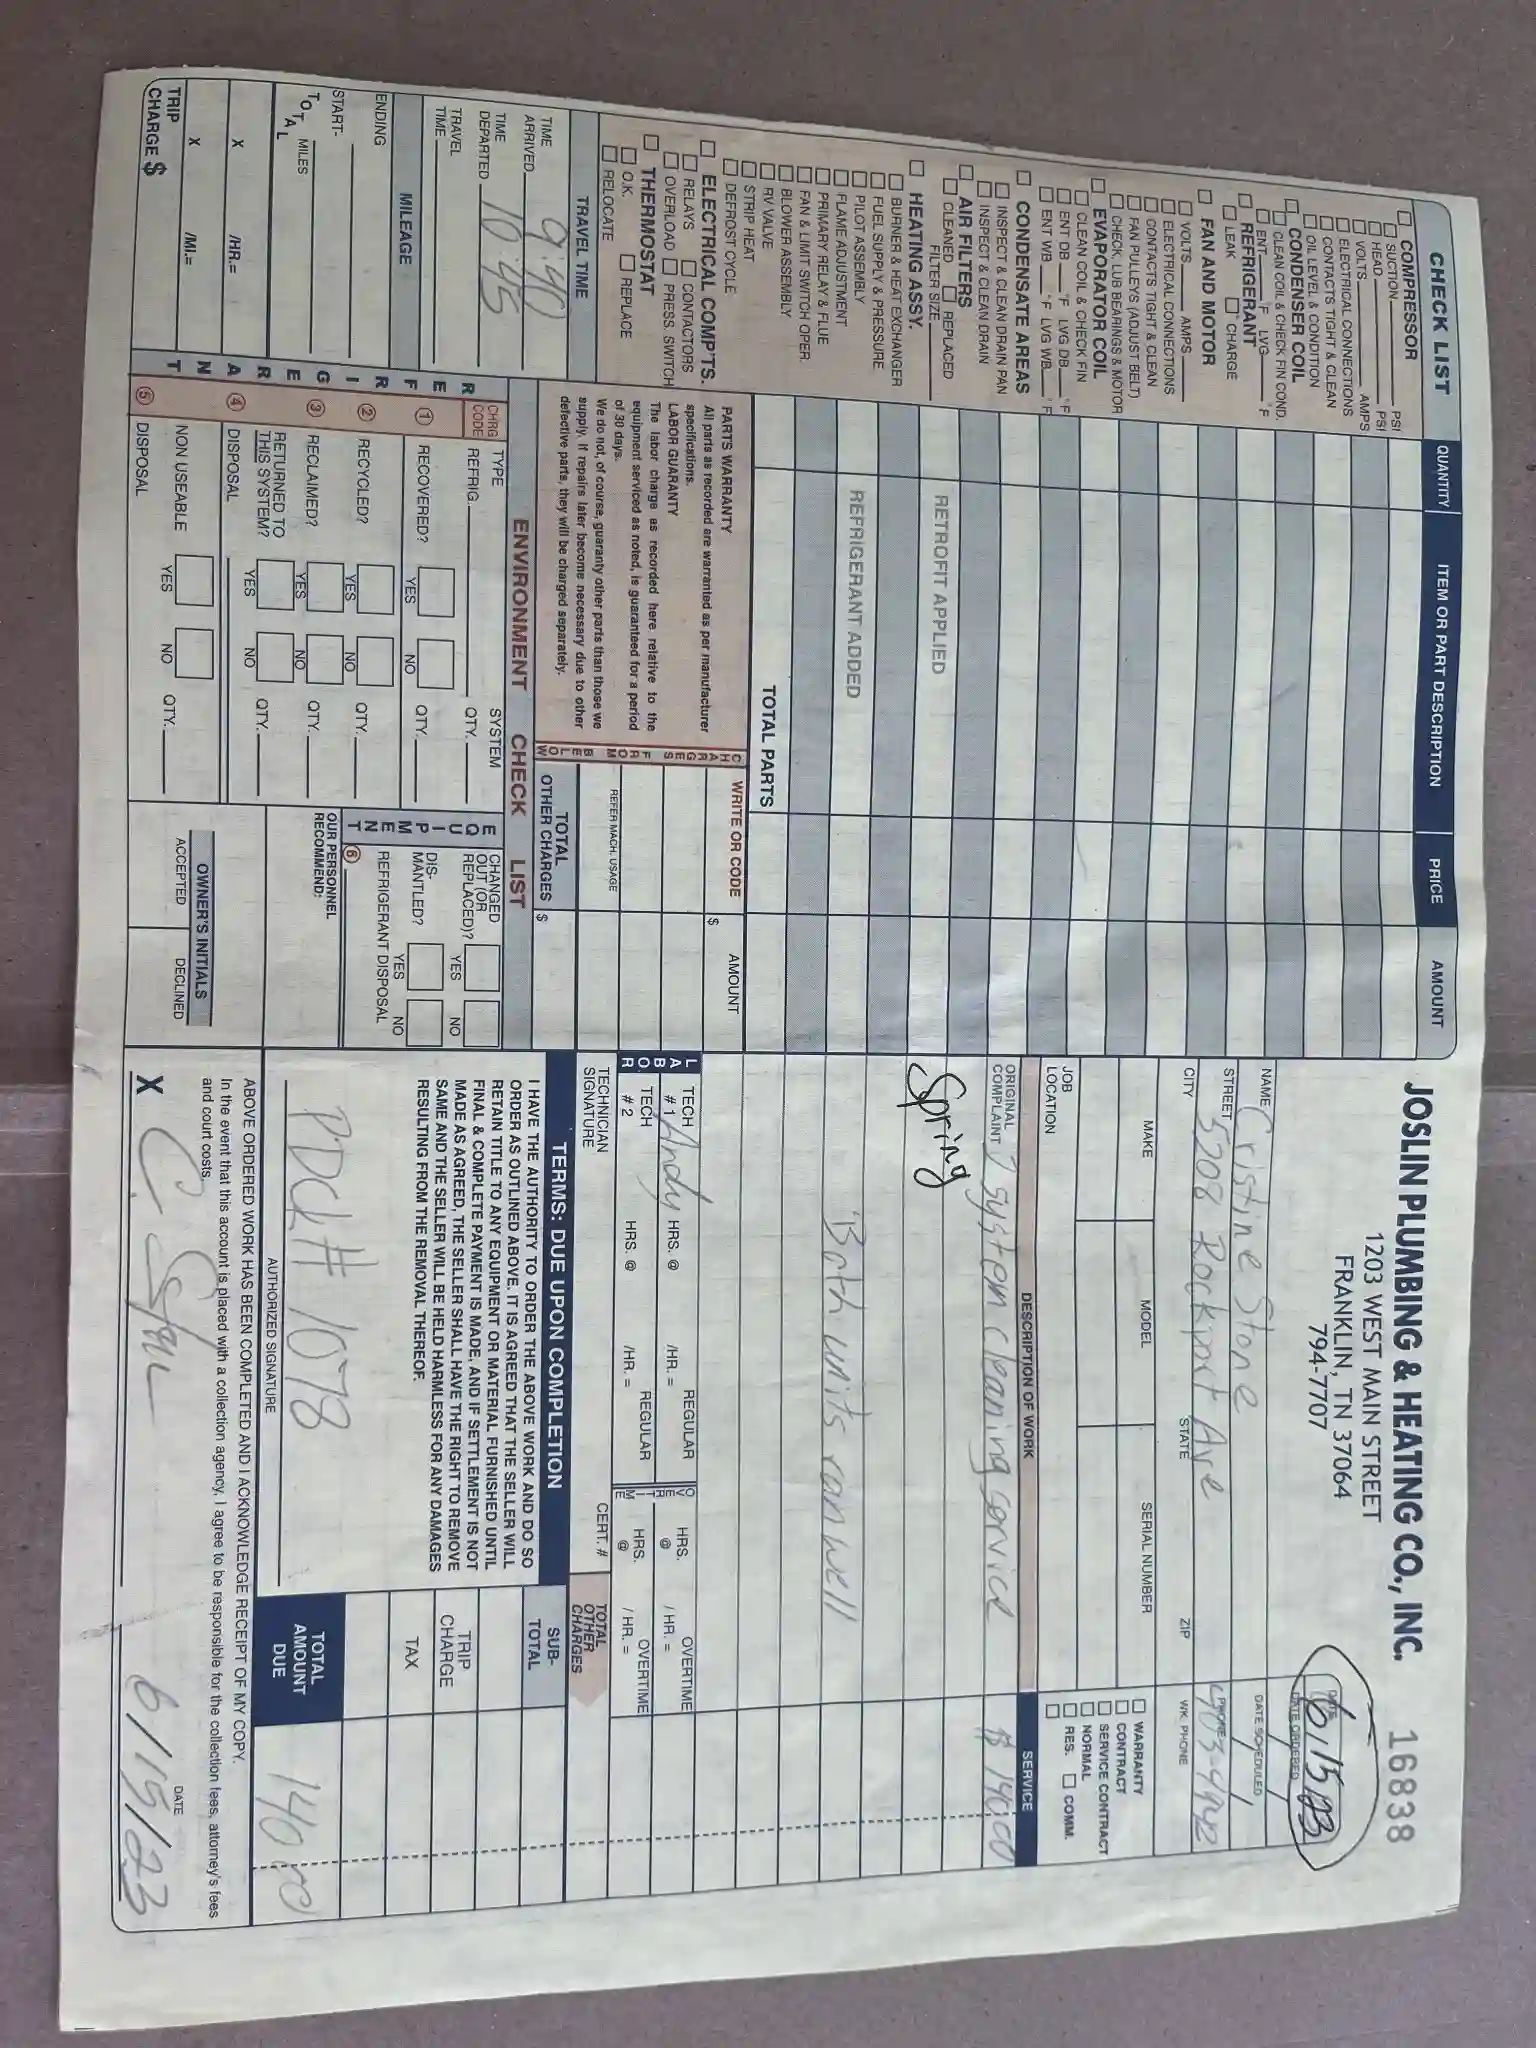 JOSLIN PLUMBING & HEATING CO., INC.
1203 WEST MAIN STREET
FRANKLIN, TN 37064
794-7707
16838
DATE
6/15/23
DATE ORDERED
NAME Cristine Stone
DATE SCHEDULED
STREET 5208 Rockport Ave
PHONE 403-4942
CITY STATE ZIP
WK. PHONE
MAKE MODEL SERIAL NUMBER
WARRANTY
CONTRACT
SERVICE CONTRACT
NORMAL
RES. COMM.
JOB
LOCATION
DESCRIPTION OF WORK
SERVICE
ORIGINAL
COMPLAINT 2 system cleaning service
$ 140.00
Spring
Both units ran well
LABOR
TECH
#1 Andy HRS. @ /HR. = REGULAR
TECH
#2 HRS. @ /HR. = REGULAR
OVERTIME
HRS.
@ / HR. = OVERTIME
HRS.
@ / HR. = OVERTIME
TECHNICIAN
SIGNATURE
CERT. #
TOTAL
OTHER
CHARGES
TERMS: DUE UPON COMPLETION
I HAVE THE AUTHORITY TO ORDER THE ABOVE WORK AND DO SO
ORDER AS OUTLINED ABOVE. IT IS AGREED THAT THE SELLER WILL
RETAIN TITLE TO ANY EQUIPMENT OR MATERIAL FURNISHED UNTIL
FINAL & COMPLETE PAYMENT IS MADE, AND IF SETTLEMENT IS NOT
MADE AS AGREED, THE SELLER SHALL HAVE THE RIGHT TO REMOVE
SAME AND THE SELLER WILL BE HELD HARMLESS FOR ANY DAMAGES
RESULTING FROM THE REMOVAL THEREOF.
SUB-
TOTAL
TRIP
CHARGE
TAX
TOTAL
AMOUNT
DUE
140
PDCk# 1078
AUTHORIZED SIGNATURE
ABOVE ORDERED WORK HAS BEEN COMPLETED AND I ACKNOWLEDGE RECEIPT OF MY COPY.
In the event that this account is placed with a collection agency, I agree to be responsible for the collection fees, attorney's fees
and court costs.
X
DATE
6/15/23
CHECK LIST
COMPRESSOR
SUCTION PSI
HEAD PSI
VOLTS AMPS
ELECTRICAL CONNECTIONS
CONTACTS TIGHT & CLEAN
OIL LEVEL & CONDITION
CONDENSER COIL
CLEAN COIL & CHECK FIN COND.
ENT. °F LVG. °F
REFRIGERANT
LEAK CHARGE
FAN AND MOTOR
VOLTS AMPS
ELECTRICAL CONNECTIONS
CONTACTS TIGHT & CLEAN
FAN PULLEYS (ADJUST BELT)
CHECK, LUB BEARINGS & MOTOR
EVAPORATOR COIL
CLEAN COIL & CHECK FIN
ENT DB °F LVG DB °F
ENT WB °F LVG WB °F
CONDENSATE AREAS
INSPECT & CLEAN DRAIN PAN
INSPECT & CLEAN DRAIN
AIR FILTERS
CLEANED REPLACED
FILTER SIZE
HEATING ASSY.
BURNER & HEAT EXCHANGER
FUEL SUPPLY & PRESSURE
PILOT ASSEMBLY
FLAME ADJUSTMENT
PRIMARY RELAY & FLUE
FAN & LIMIT SWITCH OPER.
BLOWER ASSEMBLY
RV VALVE
STRIP HEAT
DEFROST CYCLE
ELECTRICAL COMP'TS.
RELAYS CONTACTORS
OVERLOAD PRESS. SWITCH
THERMOSTAT
O.K. REPLACE
RELOCATE
TRAVEL TIME
TIME
ARRIVED 9:40
TIME
DEPARTED 10:45
TRAVEL
TIME
MILEAGE
ENDING
START-
TOTAL MILES
X /HR.=
X /MI.=
TRIP
CHARGE $
QUANTITY ITEM OR PART DESCRIPTION PRICE AMOUNT
RETROFIT APPLIED
REFRIGERANT ADDED
TOTAL PARTS
PARTS WARRANTY
All parts as recorded are warranted as per manufacturer
specifications.
LABOR GUARANTY
The labor charge as recorded here relative to the
equipment serviced as noted, is guaranteed for a period
of 30 days.
We do not, of course, guaranty other parts than those we
supply. If repairs later become necessary due to other
defective parts, they will be charged separately.
CHARGES FROM BELOW
WRITE OR CODE AMOUNT
$
REFER MACH. USAGE
TOTAL
OTHER CHARGES $
ENVIRONMENT CHECK LIST
REFRIGERANT
CHRG
CODE
TYPE
REFRIG. SYSTEM
QTY.
1 RECOVERED? YES NO QTY.
2 RECYCLED? YES NO QTY.
3 RECLAIMED? YES NO QTY.
RETURNED TO
THIS SYSTEM? YES NO QTY.
4 DISPOSAL
NON USEABLE YES NO QTY.
5 DISPOSAL
EQUIPMENT
CHANGED
OUT (OR
REPLACED)? YES NO
DIS-
MANTLED? YES NO
REFRIGERANT DISPOSAL
6
OUR PERSONNEL
RECOMMEND:
OWNER'S INITIALS
ACCEPTED DECLINED